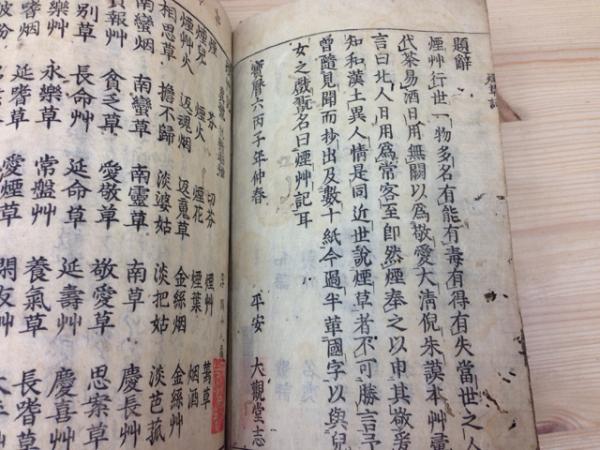 題辭
煙艸行世一物多名有能有毒有得有失當世之人
代茶易酒日用無關以爲敬愛大淸倪朱謨本艸彙
言曰北人日用爲常客至即然煙奉之以申其敬爰
知和漢土異人情是同近世說煙草者不可勝言予
曾隨見聞而抄出及數十紙今過半華國字以與兒
女之戲翫名曰煙艸記耳
寶曆六丙子年仲春
平安 大觀堂志
芬 切芬 煙艸 萬草
煙火 煙花 煙葉 烟酒
煙艸火 返魂烟 返蒐草 金絲烟 金絲艸
相思草 擔不歸 淡婆姑 淡把姑 淡芭菰
南蠻烟 南蠻草 南靈草 南草 慶長艸
貧報艸 貧乏草 愛敬草 敬愛草 思案草
別草 長命艸 延命草 延壽艸 慶喜艸
樂艸 永樂草 常盤艸 養氣草 長嗜草
嗜烟 延嗜草 愛煙草 閑友艸